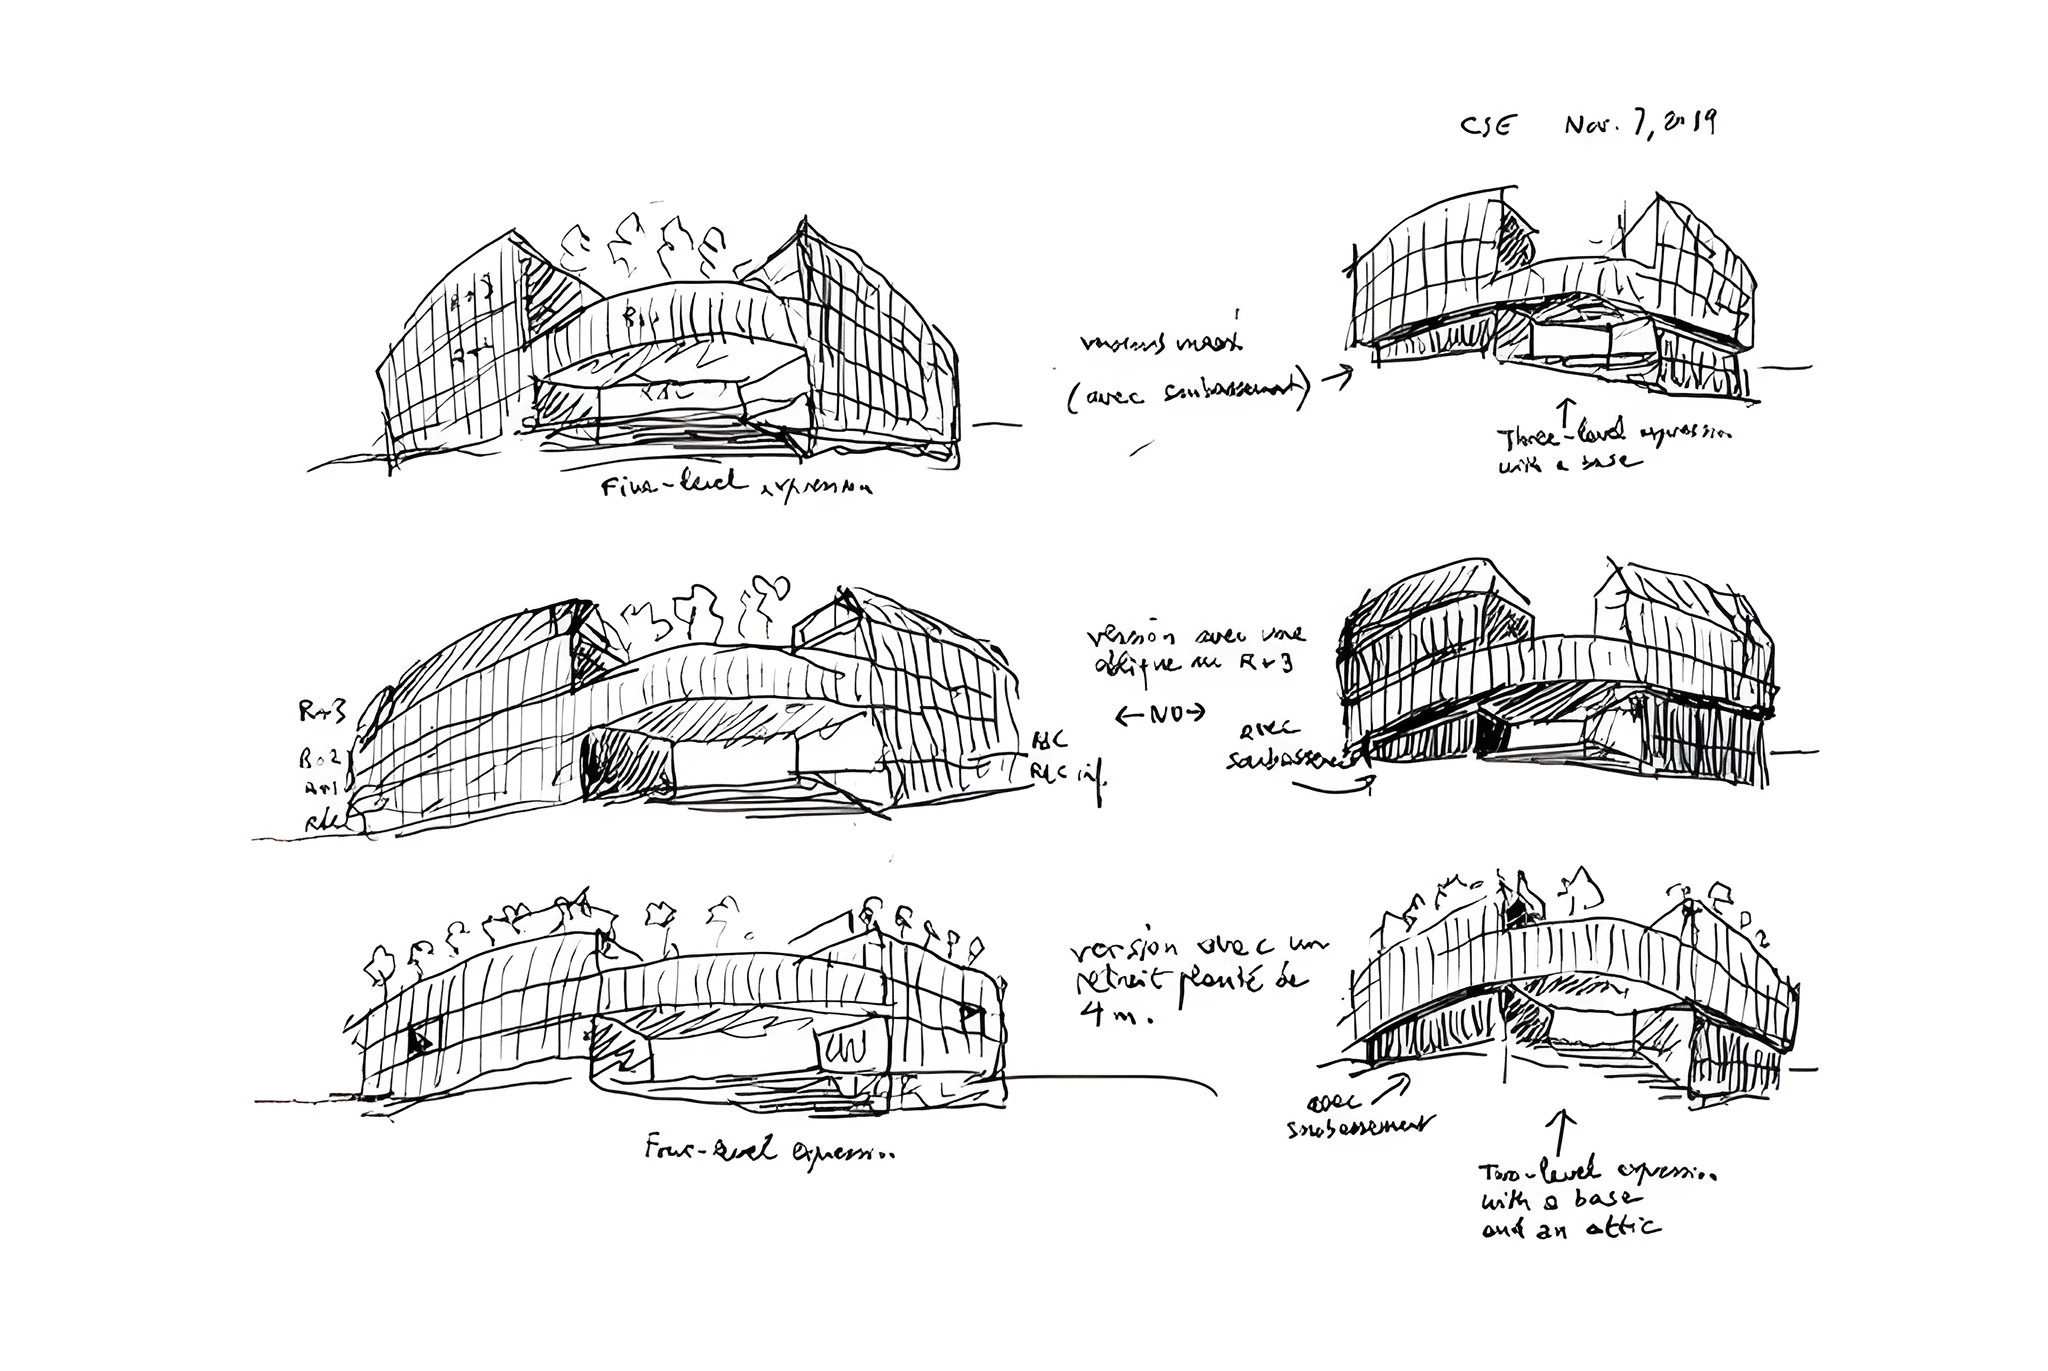 CSE Nov. 7, 2019
R+3
R+1
RdC
Five-level expression
(avec soubassement)
Three-level expression
with a base
version avec une
oblique au R+3
←NO→
avec
soubassement
R+3
R+2
R+1
RdC
RdC
RdC inf.
version avec un
retrait planté de
4 m.
Four-level expression
avec
soubassement
Two-level expression
with a base
and an attic